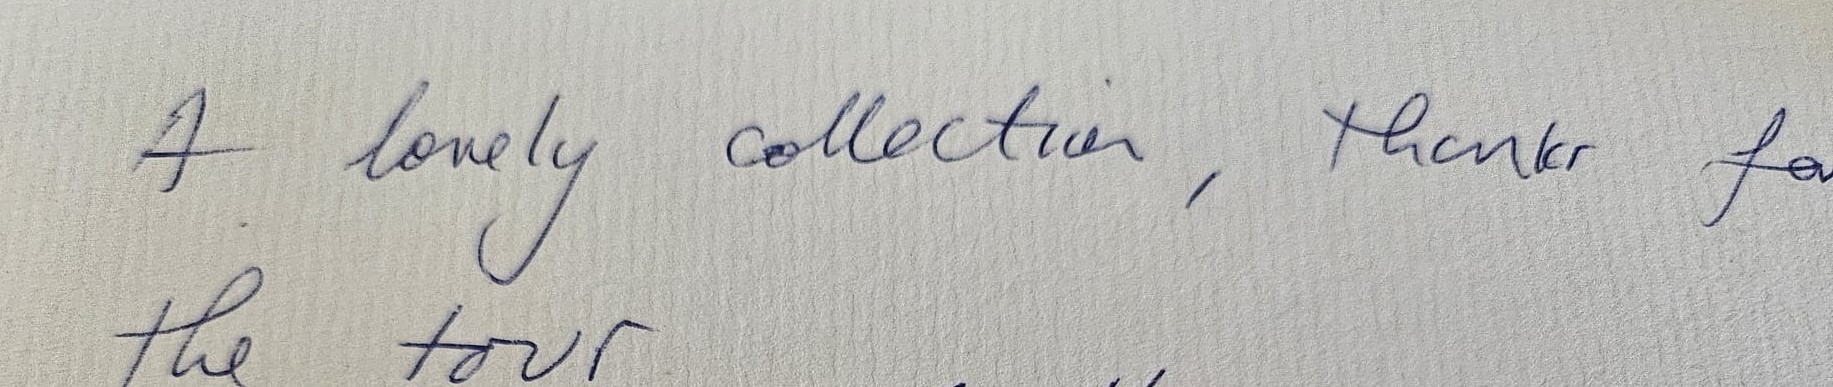 A lovely collection, thanks fo
the tour